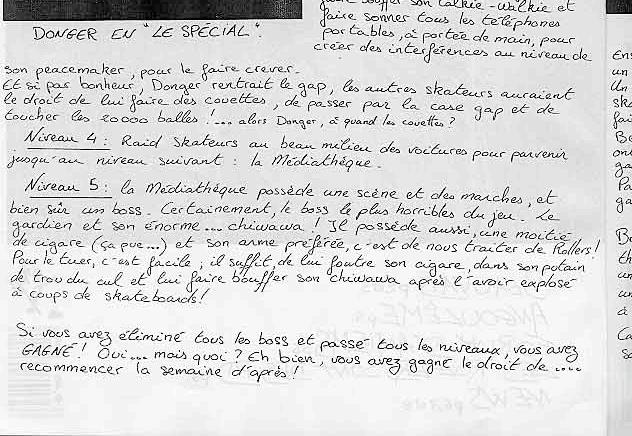 faire bouffer son talkie-walkie et
faire sonner tous les téléphones
portables, à portée de main, pour
créer des interférences au niveau de
DONGER EN "LE SPÉCIAL".
son peacemaker, pour le faire crever.
Et si par bonheur, Donger rentrait le gap, les autres skateurs auraient
le droit de lui faire des couettes, de passer par la case gap et de
toucher les 20000 balles !... alors Donger, à quand les couettes ?
Niveau 4 : Raid skateurs au beau milieu des voitures pour parvenir
jusqu'au niveau suivant : la Médiathèque.
Niveau 5 : la Médiathèque possède une scène et des marches, et
bien sûr un boss. Certainement, le boss le plus horribles du jeu. Le
gardien et son énorme... chiwawa ! Il possède aussi, une moitié
de cigare (ça pue...) et son arme préférée, c'est de nous traiter de Rollers !
Pour le tuer, c'est facile ; il suffit de lui foutre son cigare, dans son putain
de trou du cul et lui faire bouffer son chiwawa après l'avoir explosé
à coups de skateboards !
Si vous avez éliminé tous les boss et passé tous les niveaux, vous avez
GAGNÉ ! Oui... mais quoi ? Eh bien, vous avez gagné le droit de ....
recommencer la semaine d'après !